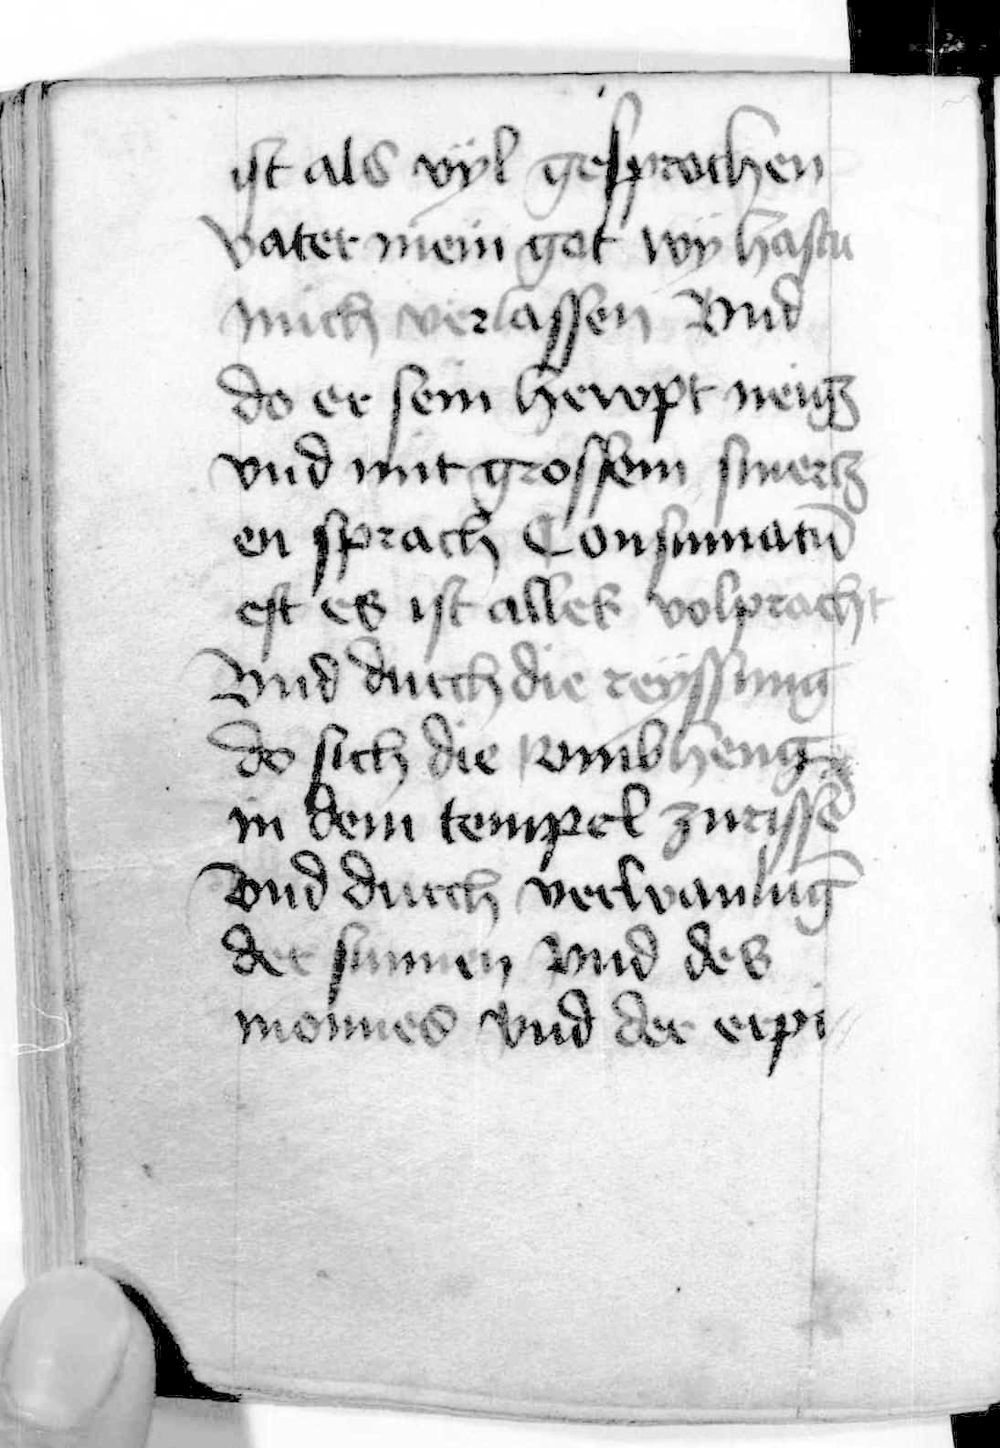 ist als vyl gesprochen
vater mein got wy hastu
mich verlassen Vnd
do er sein hewpt neigt
vnd mit grossem smertz
en sprach Consumatū
est es ist alles volpracht
Vnd durch die reyssung
do sich die vmbheng
in dem tempel zurissē
Vnd durch verwanlūg
der sunnen vnd des
monnes vnd der erpi